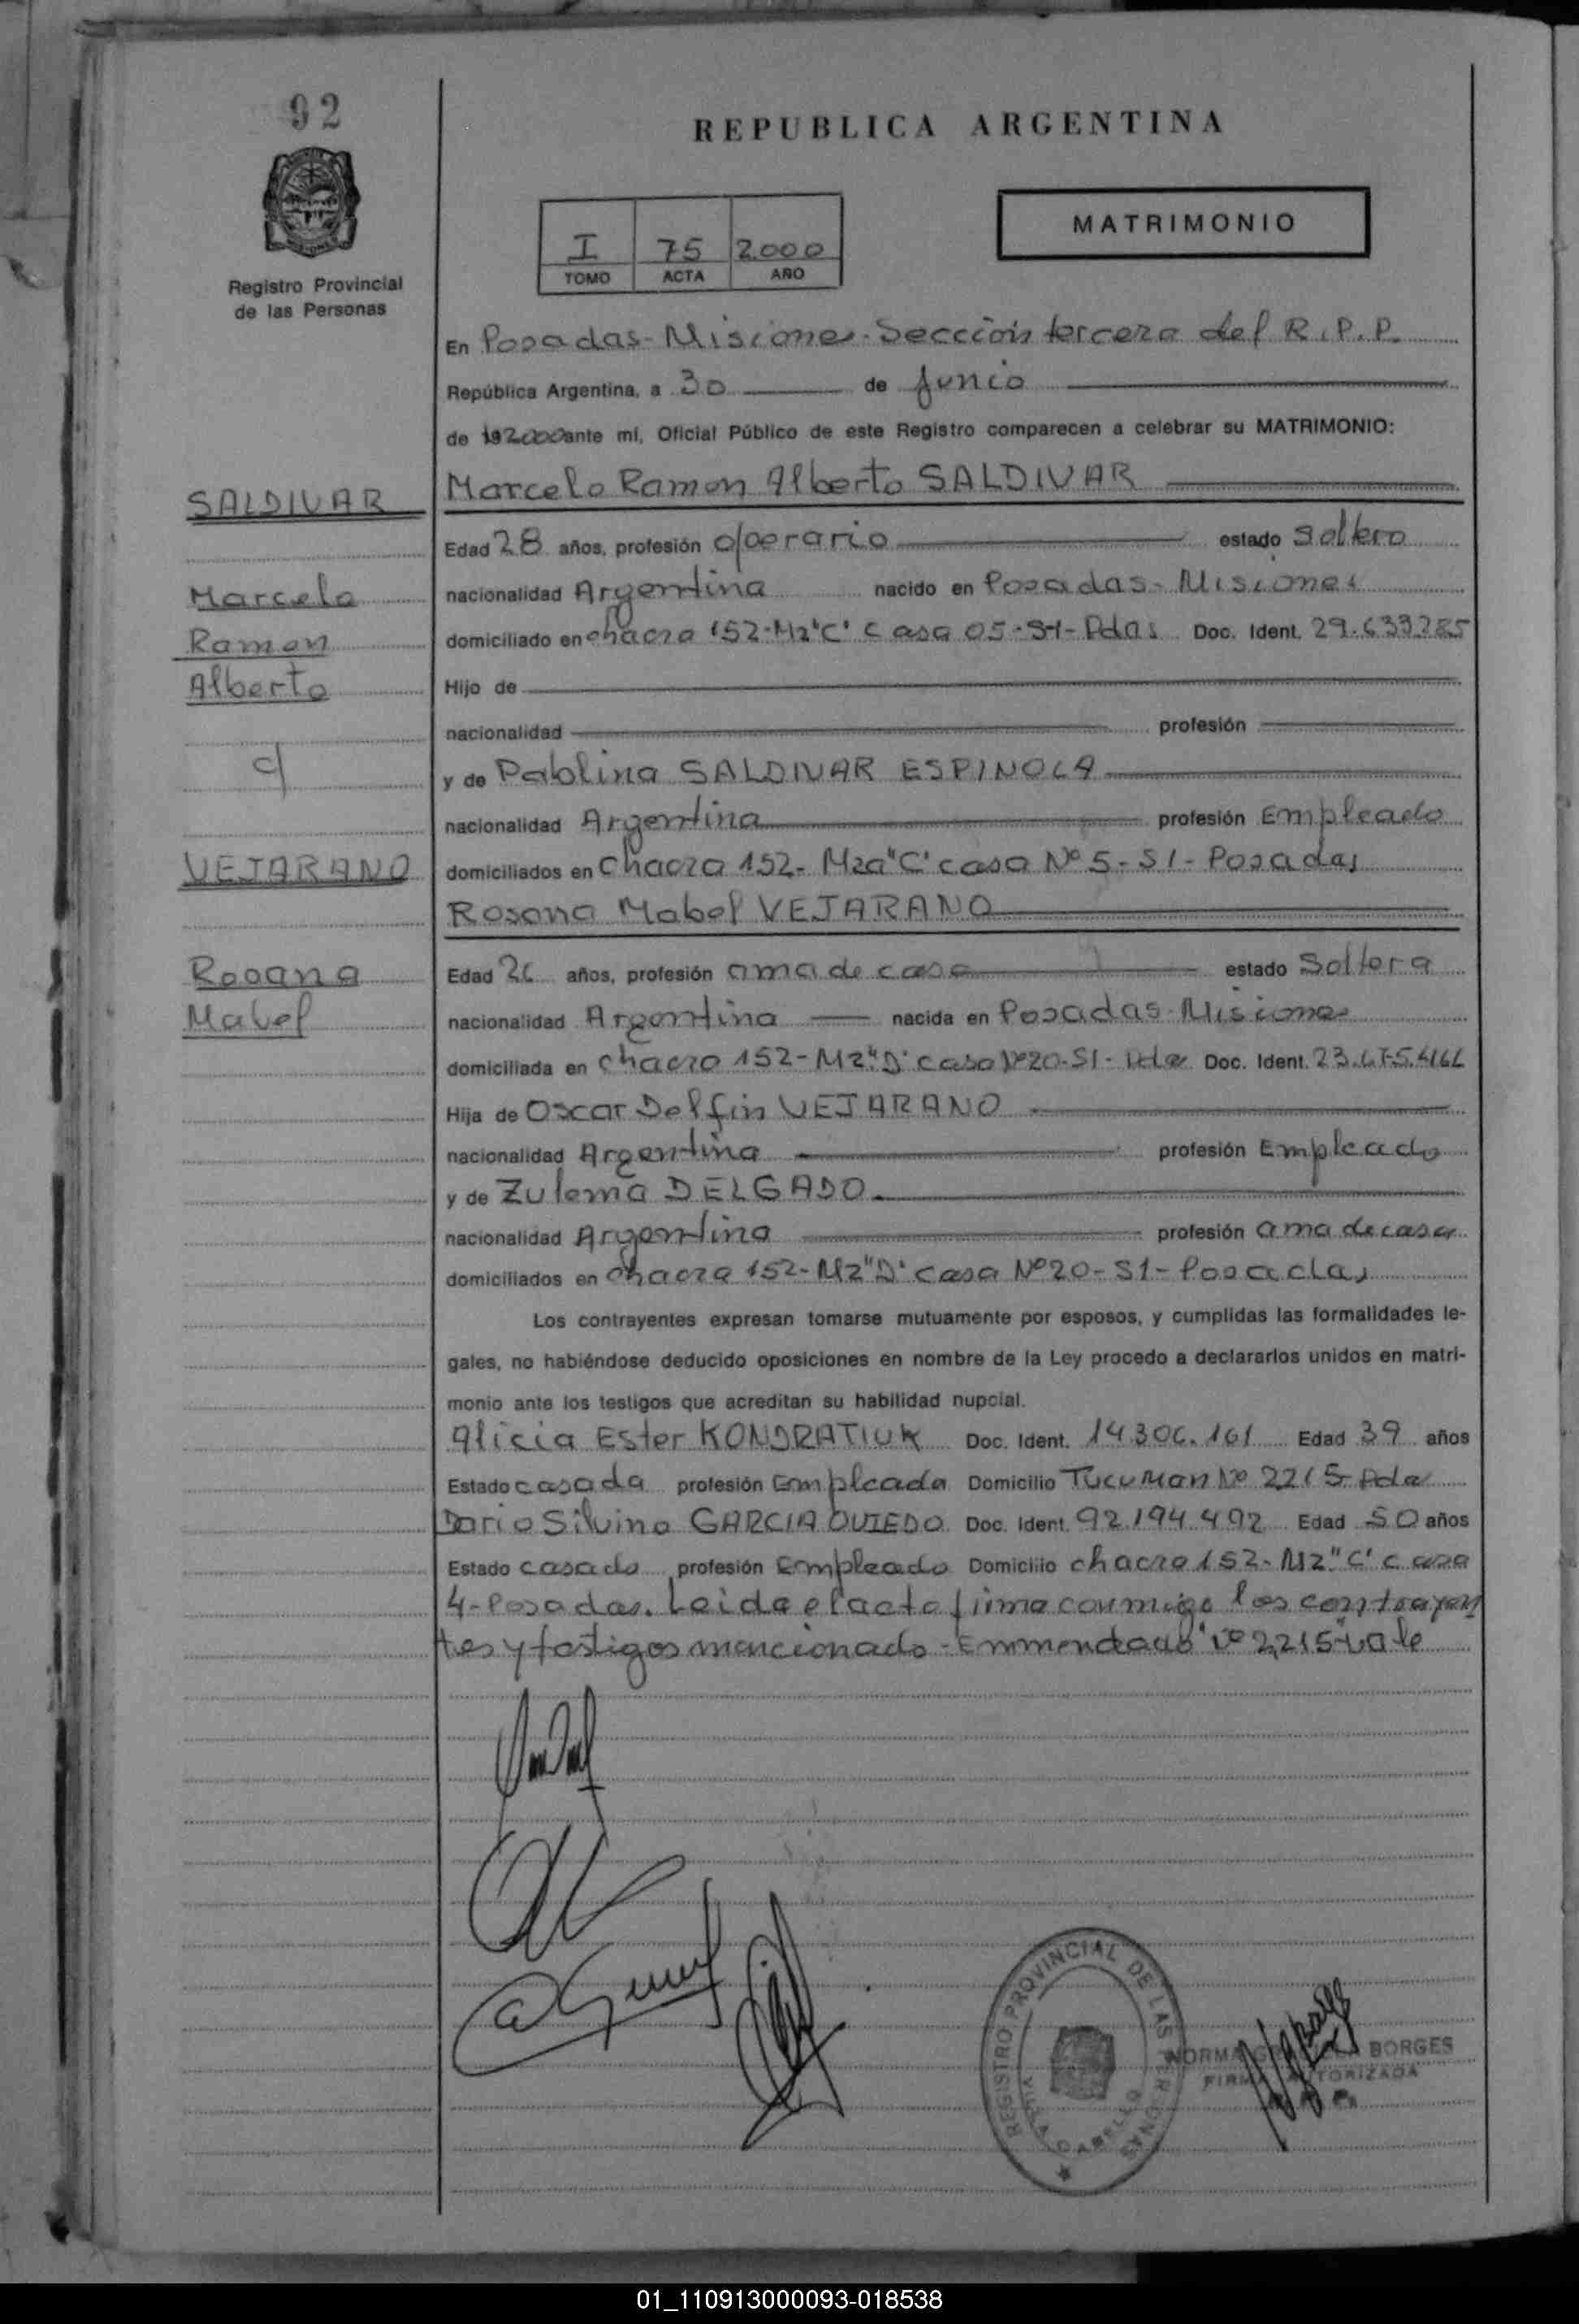 92
REPUBLICA ARGENTINA
Registro Provincial
de las Personas
I 75 2.000
TOMO ACTA AÑO
MATRIMONIO
En Posadas - Misiones - Sección tercera del R.P.P.
República Argentina, a 30 de junio
de 192000 ante mí, Oficial Público de este Registro comparecen a celebrar su MATRIMONIO:
SALDIVAR
Marcelo
Ramon
Alberto
c/
VEJARANO
Rosana
Mabel
Marcelo Ramon Alberto SALDIVAR
Edad 28 años, profesión operario estado Soltero
nacionalidad Argentina nacido en Posadas - Misiones
domiciliado en chacra 152-Mz"C" casa 05-S1-Pdas Doc. Ident. 29.633.285
Hijo de
nacionalidad profesión
y de Pablina SALDIVAR ESPINOLA
nacionalidad Argentina profesión Empleado
domiciliados en Chacra 152- Mza"C" casa Nº 5-S1-Posadas
Rosana Mabel VEJARANO
Edad 26 años, profesión ama de casa estado Soltera
nacionalidad Argentina nacida en Posadas - Misiones
domiciliada en chacra 152-Mz"D" casa Nº20-S1- Doc. Ident. 23.
Hija de Oscar Delfin VEJARANO
nacionalidad Argentina profesión Empleado
y de Zulema DELGADO
nacionalidad Argentina profesión ama de casa
domiciliados en chacra 152-Mz"D" casa Nº20-S1-Posadas
Los contrayentes expresan tomarse mutuamente por esposos, y cumplidas las formalidades le-
gales, no habiéndose deducido oposiciones en nombre de la Ley procedo a declararlos unidos en matri-
monio ante los testigos que acreditan su habilidad nupcial.
Alicia Ester KONDRATIUK Doc. Ident. 14.306.161 Edad 39 años
Estado casada profesión Empleada Domicilio Tucuman Nº 2215-Pdas
Dario Silvino GARCIA OVIEDO Doc. Ident. 92.194.492 Edad 50 años
Estado casado profesión Empleado Domicilio chacra 152-Mz"C" casa
4-Posadas. Leida el acta firma conmigo los contrayen
tes y testigos mencionado - Emmendado "Nº 2215" vale
REGISTRO PROVINCIAL DE LAS PERSONAS
NORMA BORGES
FIRMA AUTORIZADA
01_110913000093-018538